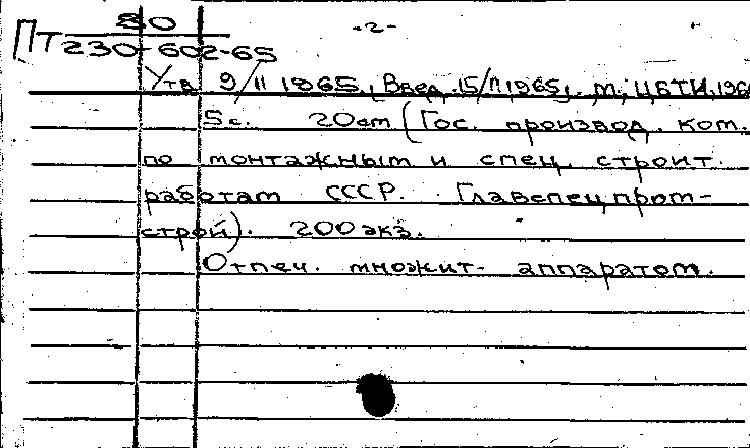 80 -2-
Пт 230-602-65
Утв 9/II 1965, Введ. 15/II 1965, м., ЦБТИ, 196
5 с. 20 см (Гос. производ. ком.
по монтажным и спец. строит.
работам СССР. Главспецпром-
строй). 200 экз.
Отпеч. множит- аппаратом.